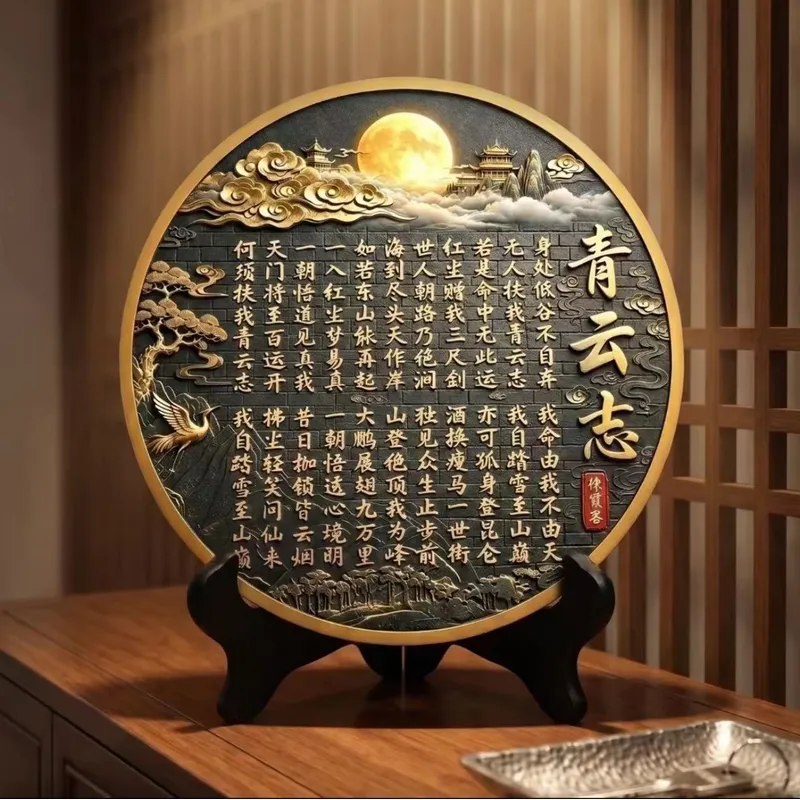 青云志
徐霞客
身处低谷不自弃 我命由我不由天
无人扶我青云志 我自踏雪至山巅
若是命中无此运 亦可孤身登昆仑
红尘赠我三尺剑 酒换瘦马一世街
世人朝路乃绝涧 独见众生止步前
海到尽头天作岸 山登绝顶我为峰
如若东山能再起 大鹏展翅九万里
一入红尘梦易真 一朝悟透心境明
一朝悟道见真我 昔日枷锁皆云烟
天门将至百运开 拂尘轻笑问仙来
何须扶我青云志 我自踏雪至山巅